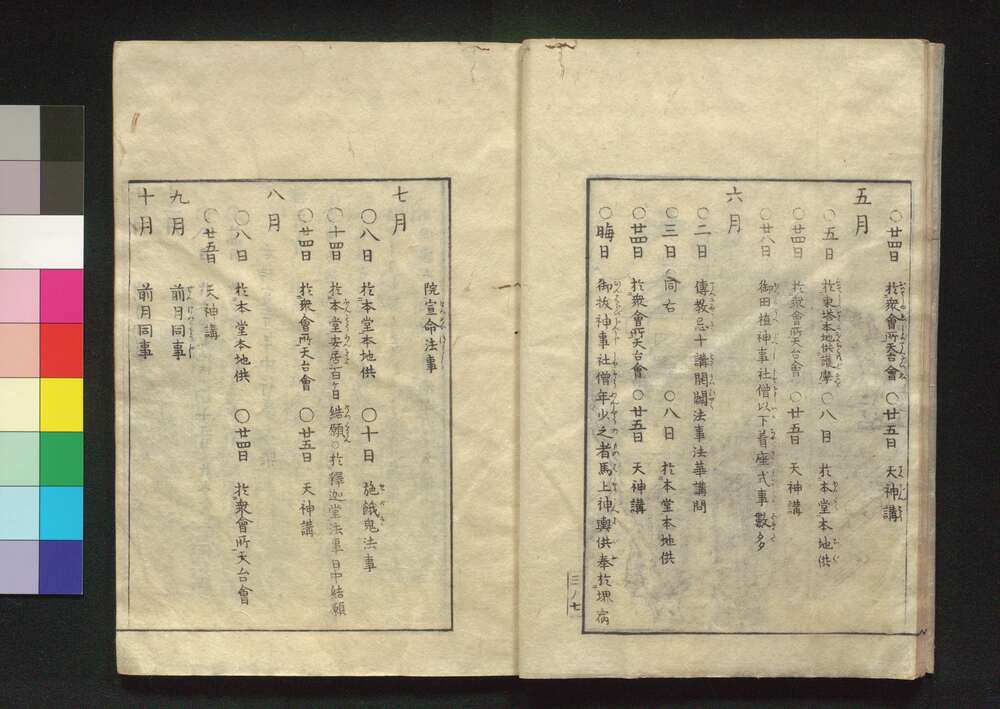 〇廿四日 於衆會所天台會 〇廿五日 天神講
五月
〇五日 於東塔本地供護摩 〇八日 於本堂本地供
〇廿四日 於衆會所天台會 〇廿五日 天神講
〇廿八日 御田植神事社僧以下着座式事數多
六月
〇二日 傳教忌十講開闢法事法華講問
〇三日 同右 〇八日 於本堂本地供
〇廿四日 於衆會所天台會 〇廿五日 天神講
〇晦日 御祓神事社僧年少之者馬上神輿供奉於堺宿
三ノ七
院宣命法事
七月
〇八日 於本堂本地供 〇十日 施餓鬼法事
〇十四日 於本堂安居百ケ日結願〇於釋迦堂法事日中結願
〇廿四日 於衆會所天台會 〇廿五日 天神講
八月
〇八日 於本堂本地供 〇廿四日 於衆會所天台會
〇廿五日 天神講
九月 前月同事
十月 前月同事